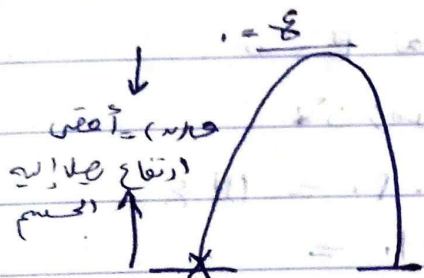 ع = ٠
ف(ن) = أقصى
ارتفاع يصل إليه
الجسم